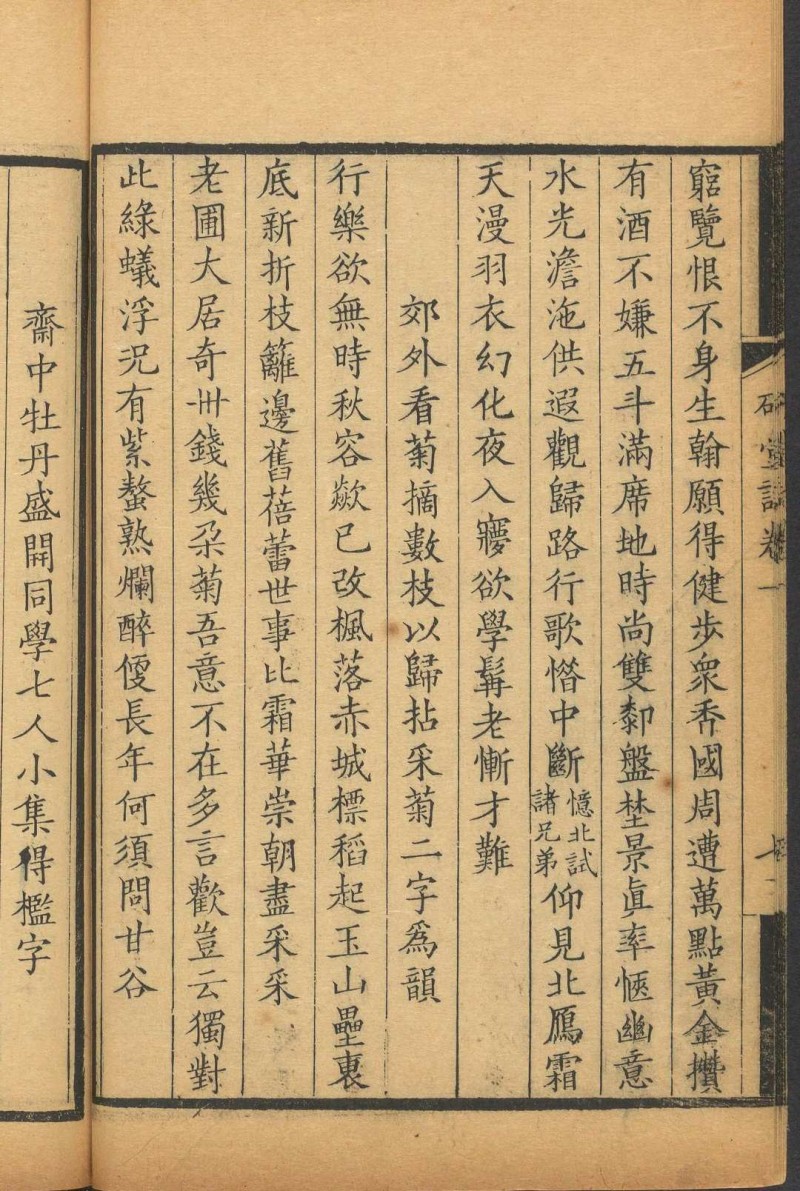 窮覽恨不身生翰願得健步衆香國周遭萬點黃金攢
有酒不嫌五斗滿席地時尚雙
盤埜景眞率愜幽意
水光澹沲供遐觀歸路行歌憯中斷憶北試諸兄弟仰見北鴈霜
天漫羽衣幻化夜入寱欲學髯老慚才難
郊外看菊摘數枝以歸拈采菊二字爲韻
行樂欲無時秋容歘已改楓落赤城標稻起玉山壘裏
底新折枝籬邊舊蓓蕾世事比霜華崇朝盡采采
老圃大居奇卌錢幾朶菊吾意不在多言歡豈云獨對
此綠蟻浮況有紫螯熟爛醉傻長年何須問甘谷
齋中牡丹盛開同學七人小集得檻字